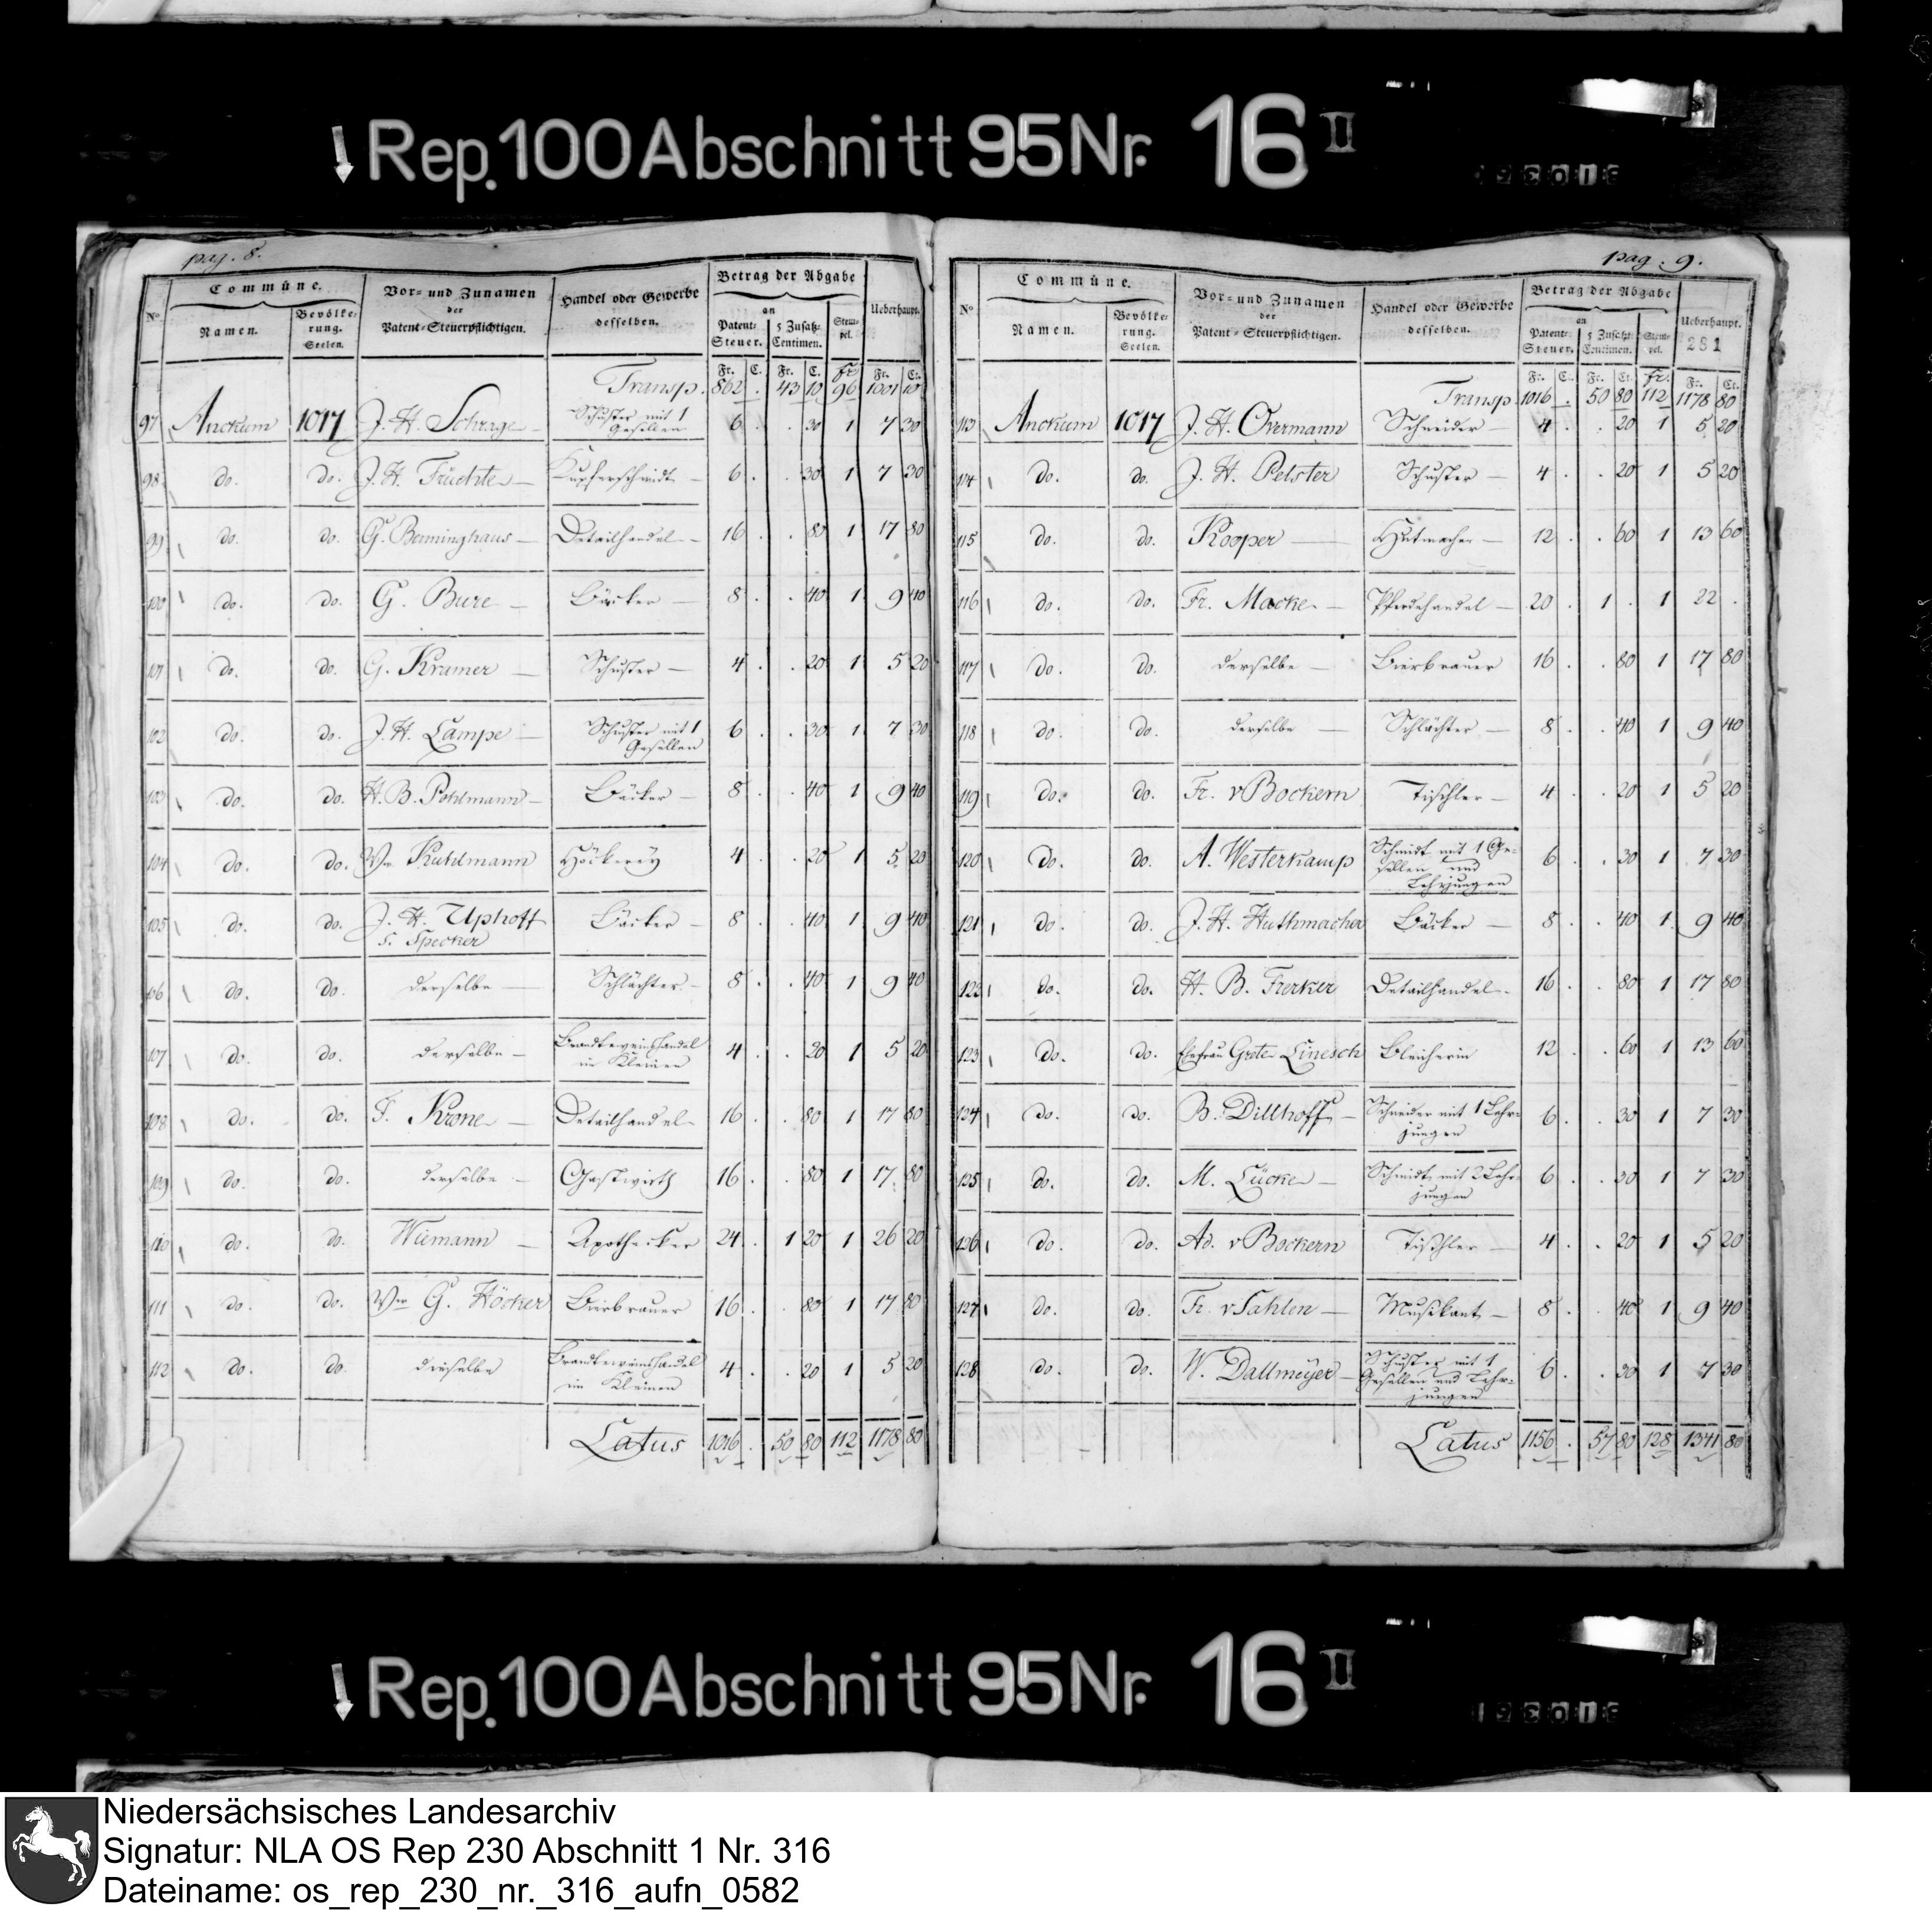 Rep. 100 Abschnitt 95 Nr. 16 II
pag. 8.
No. Commüne. Vor- und Zunamen der Patent-Steuerpflichtigen. Handel oder Gewerbe desselben. Betrag der Abgabe Ueberhaupt.
Namen. Bevölkerung. Seelen. an Patent-Steuer. 5 Zusatz-Centimen. Stempel.
Fr. C. Fr. C. Fr. Fr. Ct.
Transp. 862 . 43 10 96 1001 10
97 Anckum 1017 J. H. Schrage Schuster mit 1 Gesellen 6 . . 30 1 7 30
98 do. do. J. H. Früchte Kupferschmidt 6 . . 30 1 7 30
99 do. do. G. Berninghaus Detailhandel 16 . . 80 1 17 80
100 do. do. G. Bure Bäcker 8 . . 40 1 9 40
101 do. do. G. Kramer Schuster 4 . . 20 1 5 20
102 do. do. J. H. Lampe Schuster mit 1 Gesellen 6 . . 30 1 7 30
103 do. do. H. B. Pohlmann Bäcker 8 . . 40 1 9 40
104 do. do. Ww Kuhlmann Höckerey 4 . . 20 1 5 20
105 do. do. J. H. Uphoff s. Specker Bäcker 8 . . 40 1 9 40
106 do. do. derselbe Schlächter 8 . . 40 1 9 40
107 do. do. derselbe Brandteweinshandel im Kleinen 4 . . 20 1 5 20
108 do. do. F. Krone Detailhandel 16 . . 80 1 17 80
109 do. do. derselbe Gastwirth 16 . . 80 1 17 80
110 do. do. Wiemann Apothecker 24 . 1 20 1 26 20
111 do. do. Wwe G. Höcker Bierbrauer 16 . . 80 1 17 80
112 do. do. dieselbe Brandteweinshandel im Kleinen 4 . . 20 1 5 20
Latus 1016 . 50 80 112 1178 80
pag. 9.
No. Commüne. Vor- und Zunamen der Patent-Steuerpflichtigen. Handel oder Gewerbe desselben. Betrag der Abgabe Ueberhaupt.
Namen. Bevölkerung. Seelen. an Patent-Steuer. 5 Zusatz-Centimen. Stempel. 281
Fr. C. Fr. Ct. Fr. Fr. Ct.
Transp. 1016 . 50 80 112 1178 80
113 Anckum 1017 J. H. Overmann Schneider 4 . . 20 1 5 20
114 do. do. J. H. Pelster Schuster 4 . . 20 1 5 20
115 do. do. Kooper Hutmacher 12 . . 60 1 13 60
116 do. do. Fr. Macke Pferdehandel 20 . 1 . 1 22 .
117 do. do. derselbe Bierbrauer 16 . . 80 1 17 80
118 do. do. derselbe Schlächter 8 . . 40 1 9 40
119 do. do. Fr. v Bockern Tischler 4 . . 20 1 5 20
120 do. do. A. Westerkamp Schmidt mit 1 Gesellen und Lehrjungen 6 . . 30 1 7 30
121 do. do. J. H. Huthmacher Bäcker 8 . . 40 1 9 40
122 do. do. H. B. Frerker Detailhandel 16 . . 80 1 17 80
123 do. do. Ehefrau Grete Linesch Bleicherin 12 . . 60 1 13 60
124 do. do. B. Dillhoff Schneider mit 1 Lehrjungen 6 . . 30 1 7 30
125 do. do. M. Lücke Schmidt mit 2 Lehrjungen 6 . . 30 1 7 30
126 do. do. Ad. v Bockern Tischler 4 . . 20 1 5 20
127 do. do. Fr. v Sahlen Musikant 8 . . 40 1 9 40
128 do. do. W. Dallmeyer Schuster mit 1 Gesellen und Lehrjungen 6 . . 30 1 7 30
Latus 1156 . 57 80 128 1341 80
Rep. 100 Abschnitt 95 Nr. 16 II
Niedersächsisches Landesarchiv
Signatur: NLA OS Rep 230 Abschnitt 1 Nr. 316
Dateiname: os_rep_230_nr._316_aufn_0582